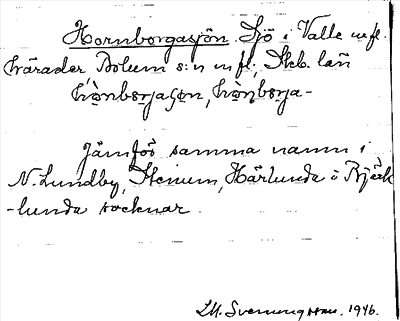 Hornborgasjön. Sjö i Valle m.fl.
härader Bolum s:n m fl., Skb. län
hò̀nborjaSən, hò̀nborja-
Jämför samma namn i
N. Lundby, Stenum, Härlunda o Bjärk
-lunda socknar.
LM. Svenungsson. 1946.